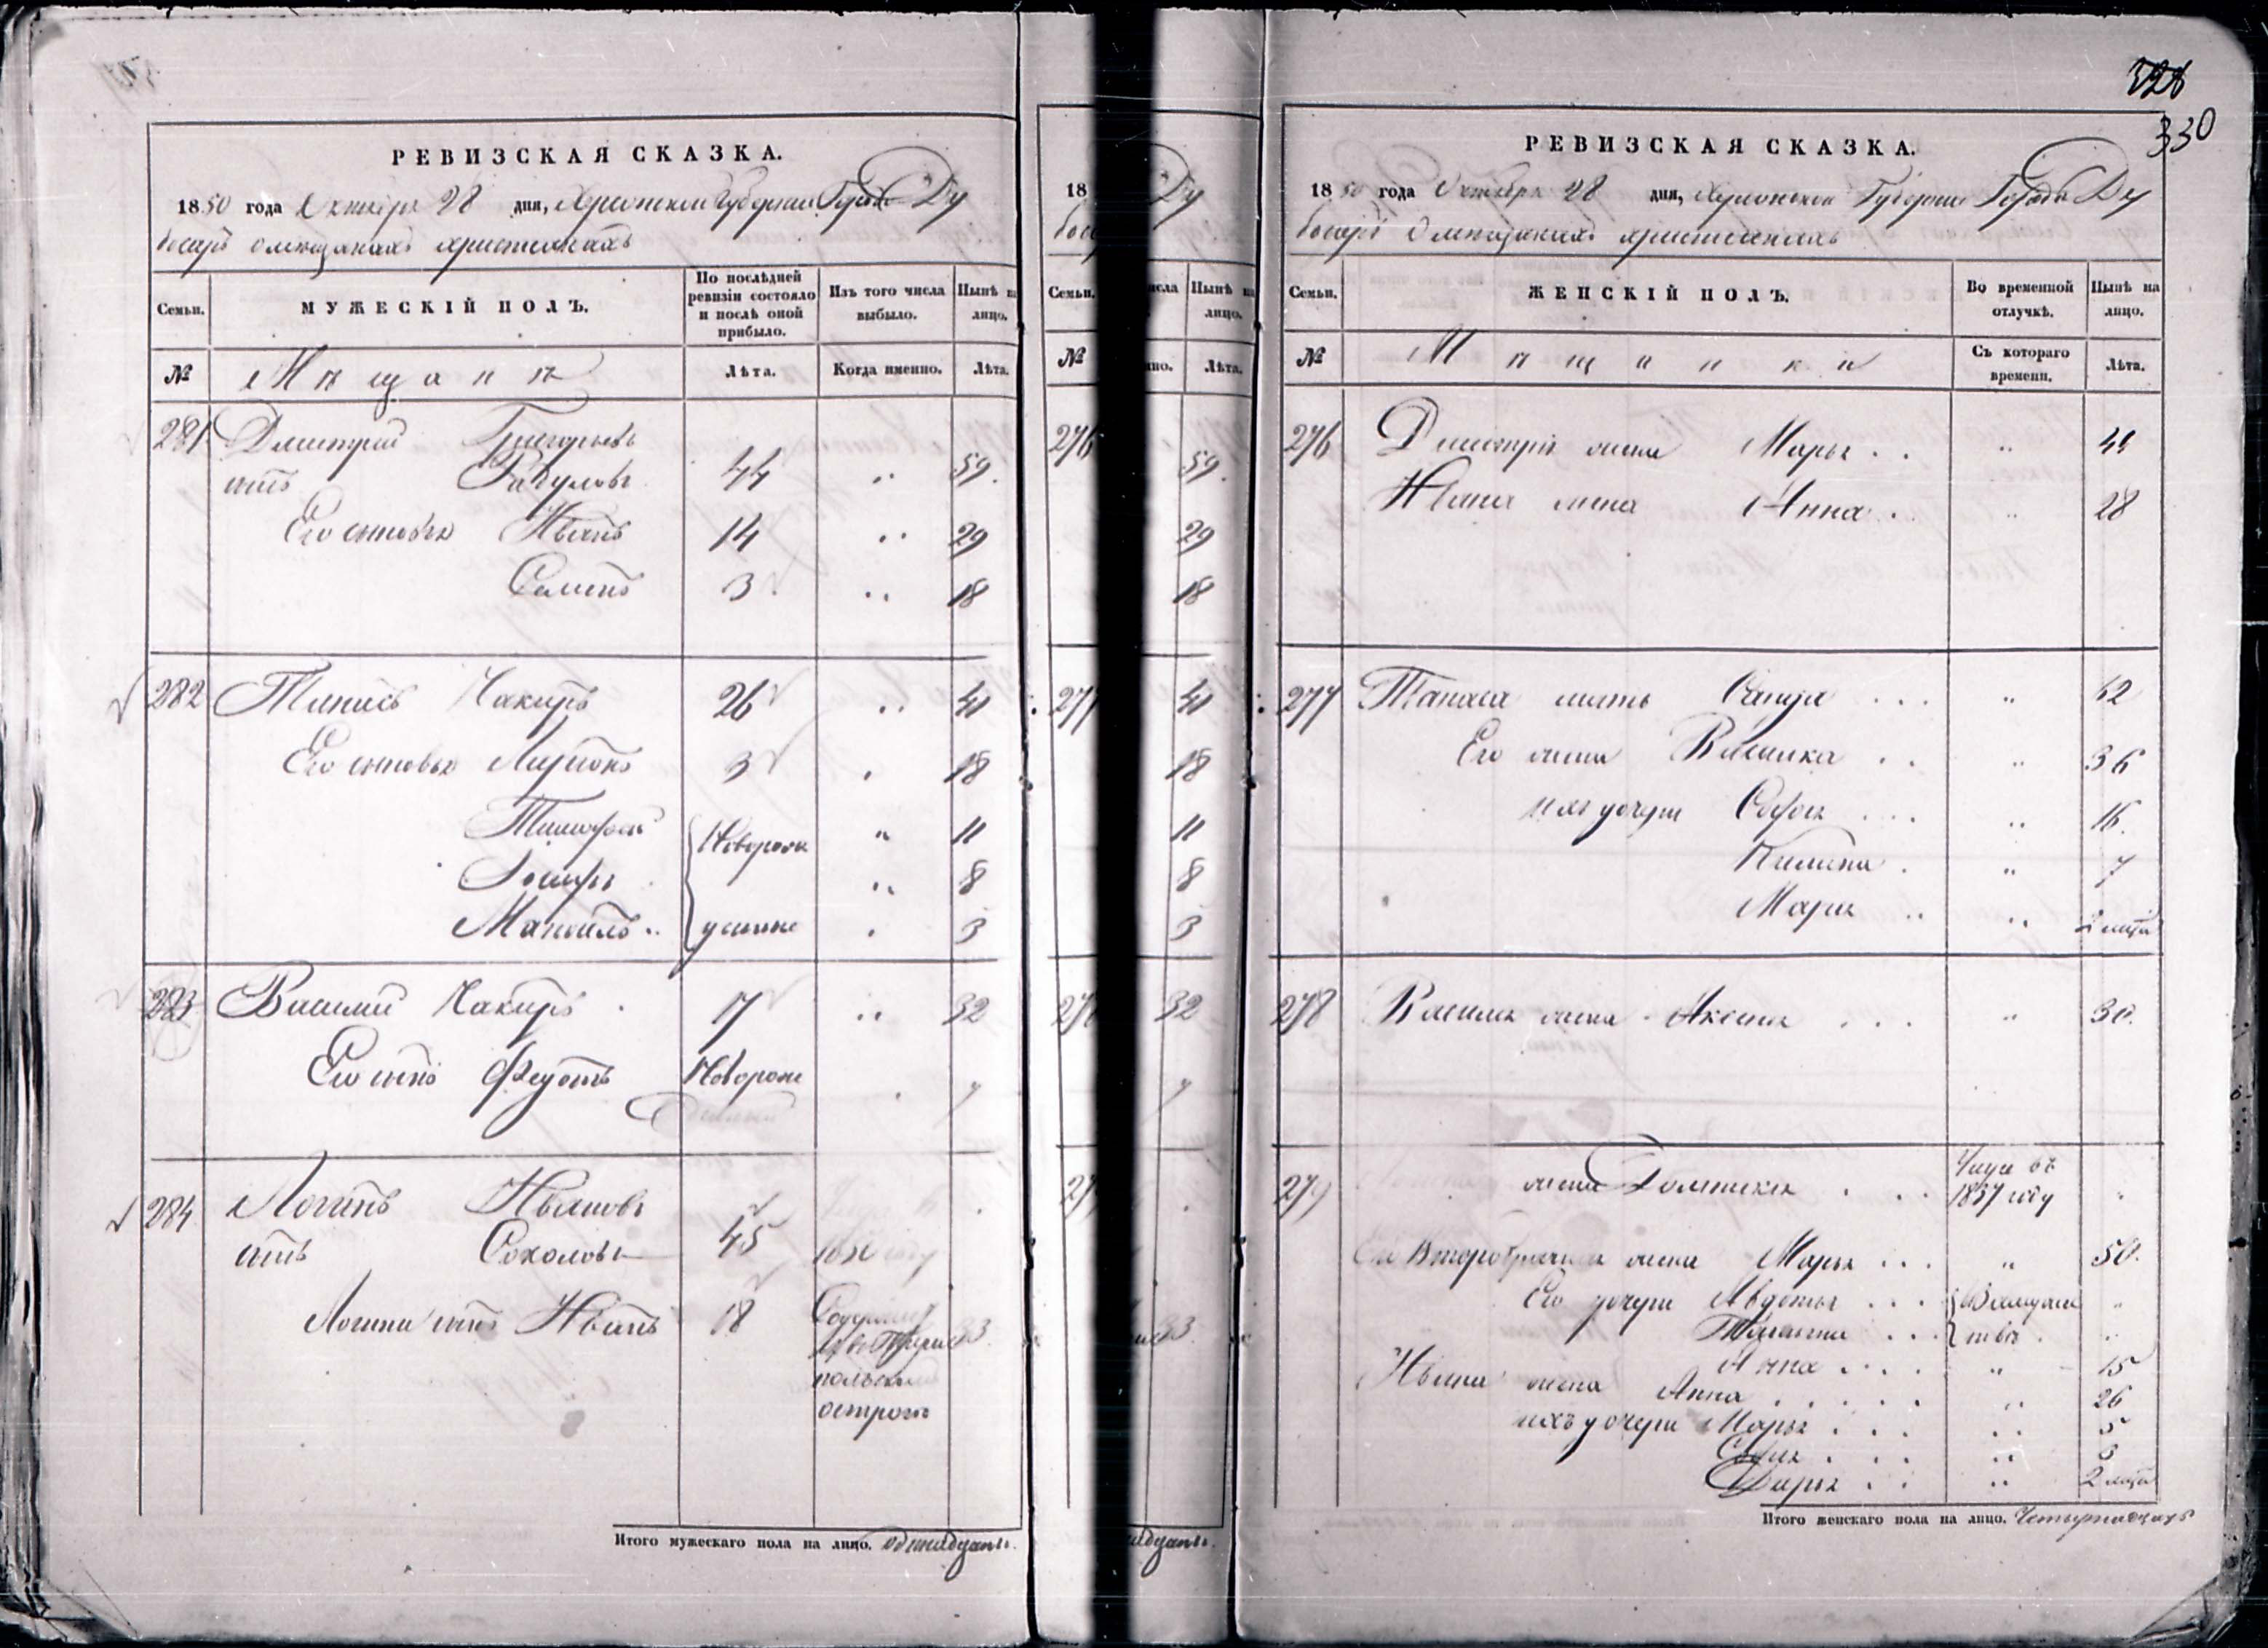 328
330
РЕВИЗСКАЯ СКАЗКА.
1850 года Октября 28 дня, Херсонской Губернии Города Ду
босаръ о мещанахъ христианахъ
Семьи. МУЖЕСКІЙ ПОЛЪ. По послѣдней ревизіи состояло и послѣ оной прибыло. Изъ того числа выбыло. Нынѣ на лицо.
№ Мѣщане Лѣта. Когда именно. Лѣта.
281 Дмитрий Григорьевъ
сынъ 44 59
Его сыновья Иванъ 14 29
Семенъ 3 18
282 Танасъ Чакиръ 26 41
Его сыновья 3 18
Тимофей Новорож 11
Іосифъ 8
Мануилъ 3
283 Василий Чакиръ 17 32
Его сынъ Федотъ Новорож 7
284 Логинъ Ивановъ
сынъ Соколовъ 45 году
Логина сынъ Иванъ 18 33
острогѣ
Итого мужескаго пола на лицо. одинадцать.
18 Ду
Семьи. числа Нынѣ на лицо.
№ Лѣта.
276 59
29
18
277 41
18
11
8
3
278 32
7
РЕВИЗСКАЯ СКАЗКА.
1850 года Октября 28 дня, Херсонской Губернии Города Ду
босаръ о мещанахъ христианахъ
Семьи. ЖЕНСКІЙ ПОЛЪ. Во временной отлучкѣ. Нынѣ на лицо.
№ Мѣщанки Съ котораго времени. Лѣта.
276 Дмитрія жена Марья
Ивана жена Анна 28
277 Танаса мать Санда 62
Его жена Василка 36
ихъ дочери Софья 16
7
Марья 2 месяца
278 Василия жена Аксинья 30.
279 жена Домникия
1837 году
Его второбрачная жена Марья 50.
Его дочери Авдотья
Татьяна
Анна 15
Ивана жена Анна 26
ихъ дочери Марья 5
Софья 3
Дарья 2 месяца
Итого женскаго пола на лицо. Четырнадцать